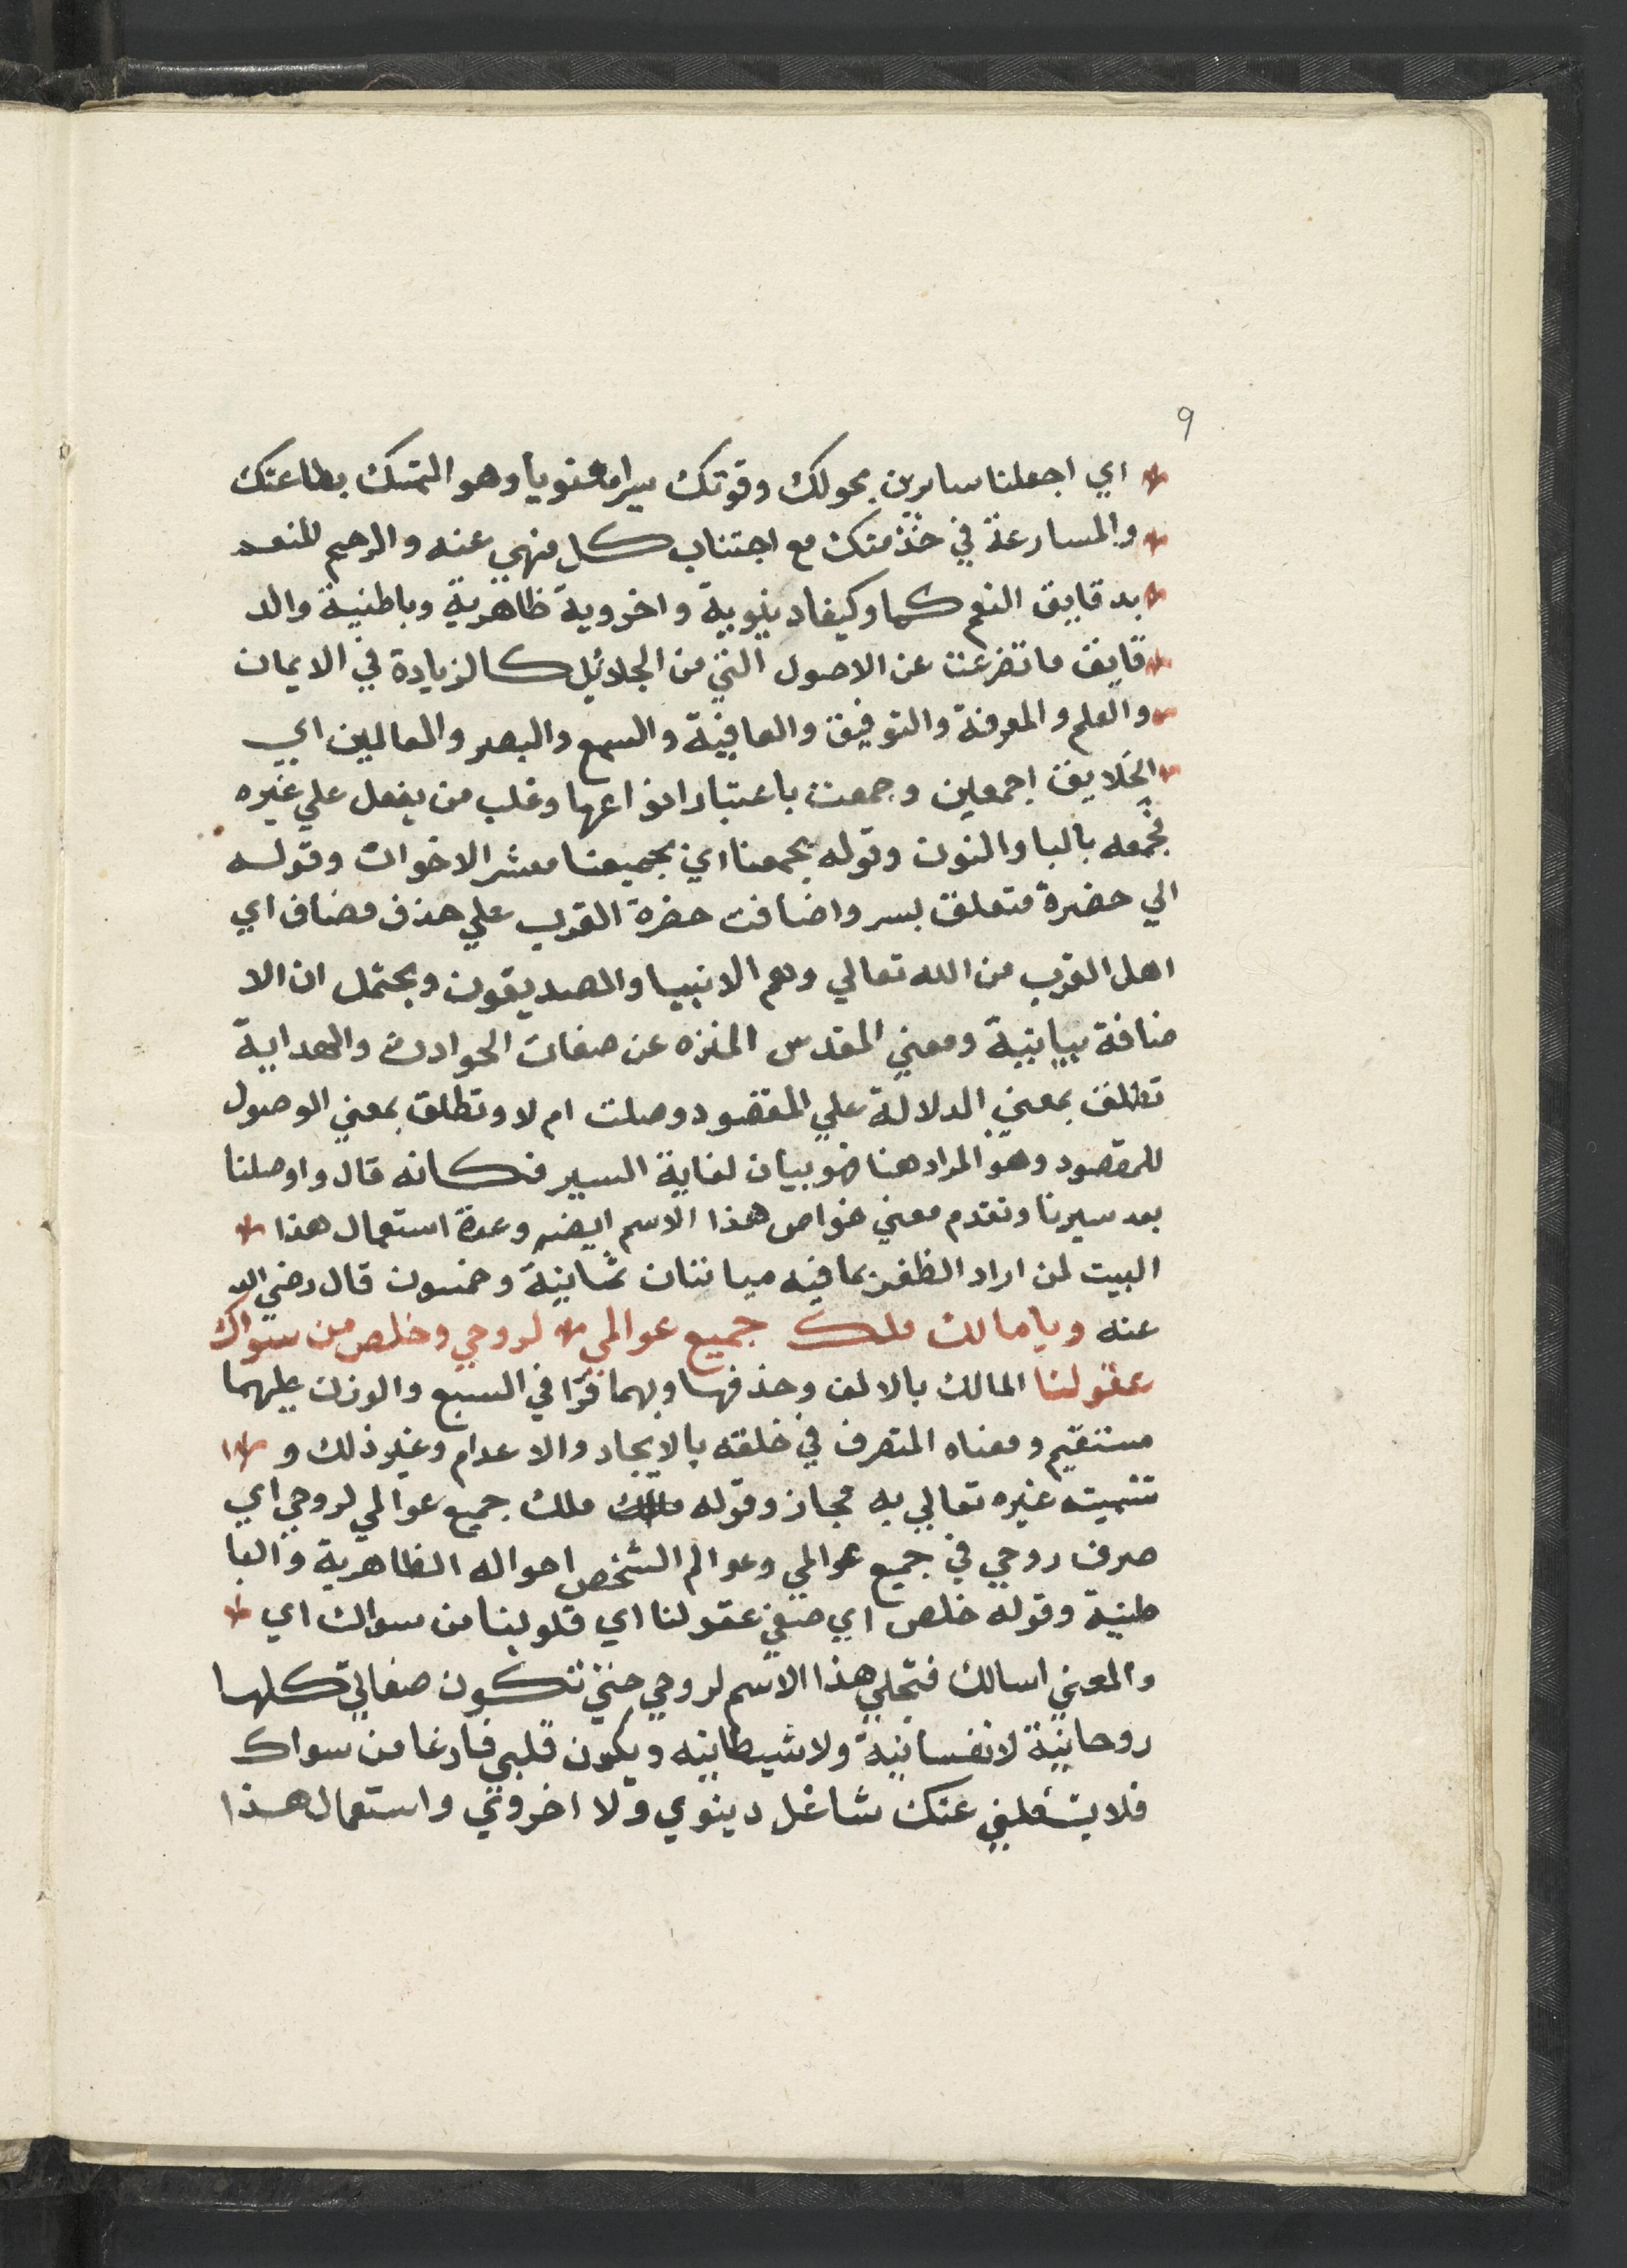 9
اي اجعلنا سايرين بحولك وقوتك سيرا معنويا وهو التمسك بطاعتك
والمسارعة في خدمتك مع اجتناب كل منهي عنه والرحيم المنعم
بدقايق النعم كما وكيفا دينوية واخروية ظاهرية وباطنية والد
قايق ما تفرعت عن الاصول التي من الجلائل كالزيادة في الايمان
والعلم والمعرفة والتوفيق والعافية والسمع والبصر والعالمين اي
الخلايق اجمعين وجمعت باعتبار انواعها وغلب من يعقل علي غيره
فجمعه باليا والنون وقوله بجمعنا اي بجميعنا معشر الاخوان وقوله
الي حضرة متعلق بسر واضافت حضرة القرب علي حذف مضاف اي
اهل القرب من الله تعالي وهم الانبيا والصديقون ويحتمل ان الا
ضافة بيانية ومعني المقدس المنزه عن صفات الحوادث والهداية
تطلق بمعني الدلالة علي المقصود وصلت ام لا وتطلق بمعني الوصول
للمقصود وهو المراد هنا فهو بيان لغاية السير فكانه قال واوصلنا
بعد سيرنا وتقدم معني خواص هذا الاسم ايضه وعدة استعمال هذا
البيت لمن اراد الظفر بما فيه مياتنان ثمانية وخمسون قال رضي الله
عنه ويا مالك ملك جميع عوالمي لروحي وخلص من سواك
عقولنا المالك بالالف وحذفها وبهما قرا في السبع والوزن عليهما
مستقيم ومعناه المتصرف في خلقه بالايجاد والاعدام وغير ذلك و
تسميته غيره تعالي به مجاز وقوله ملك جميع عوالمي لروحي اي
صرف روحي في جميع عوالمي وعوالم الشخص احواله الظاهرية والبا
طنية وقوله خلص اي صفي عقولنا اي قلوبنا من سواك اي
والمعني اسالك فتجلي هذا الاسم لروحي حتي تكون صفاتي كلها
روحانية لا نفسانية ولا شيطانيه ويكون قلبي فارغا من سواك
فلا يشغلني عنك شاغل دينوي ولا اخروي واستعمال هذا